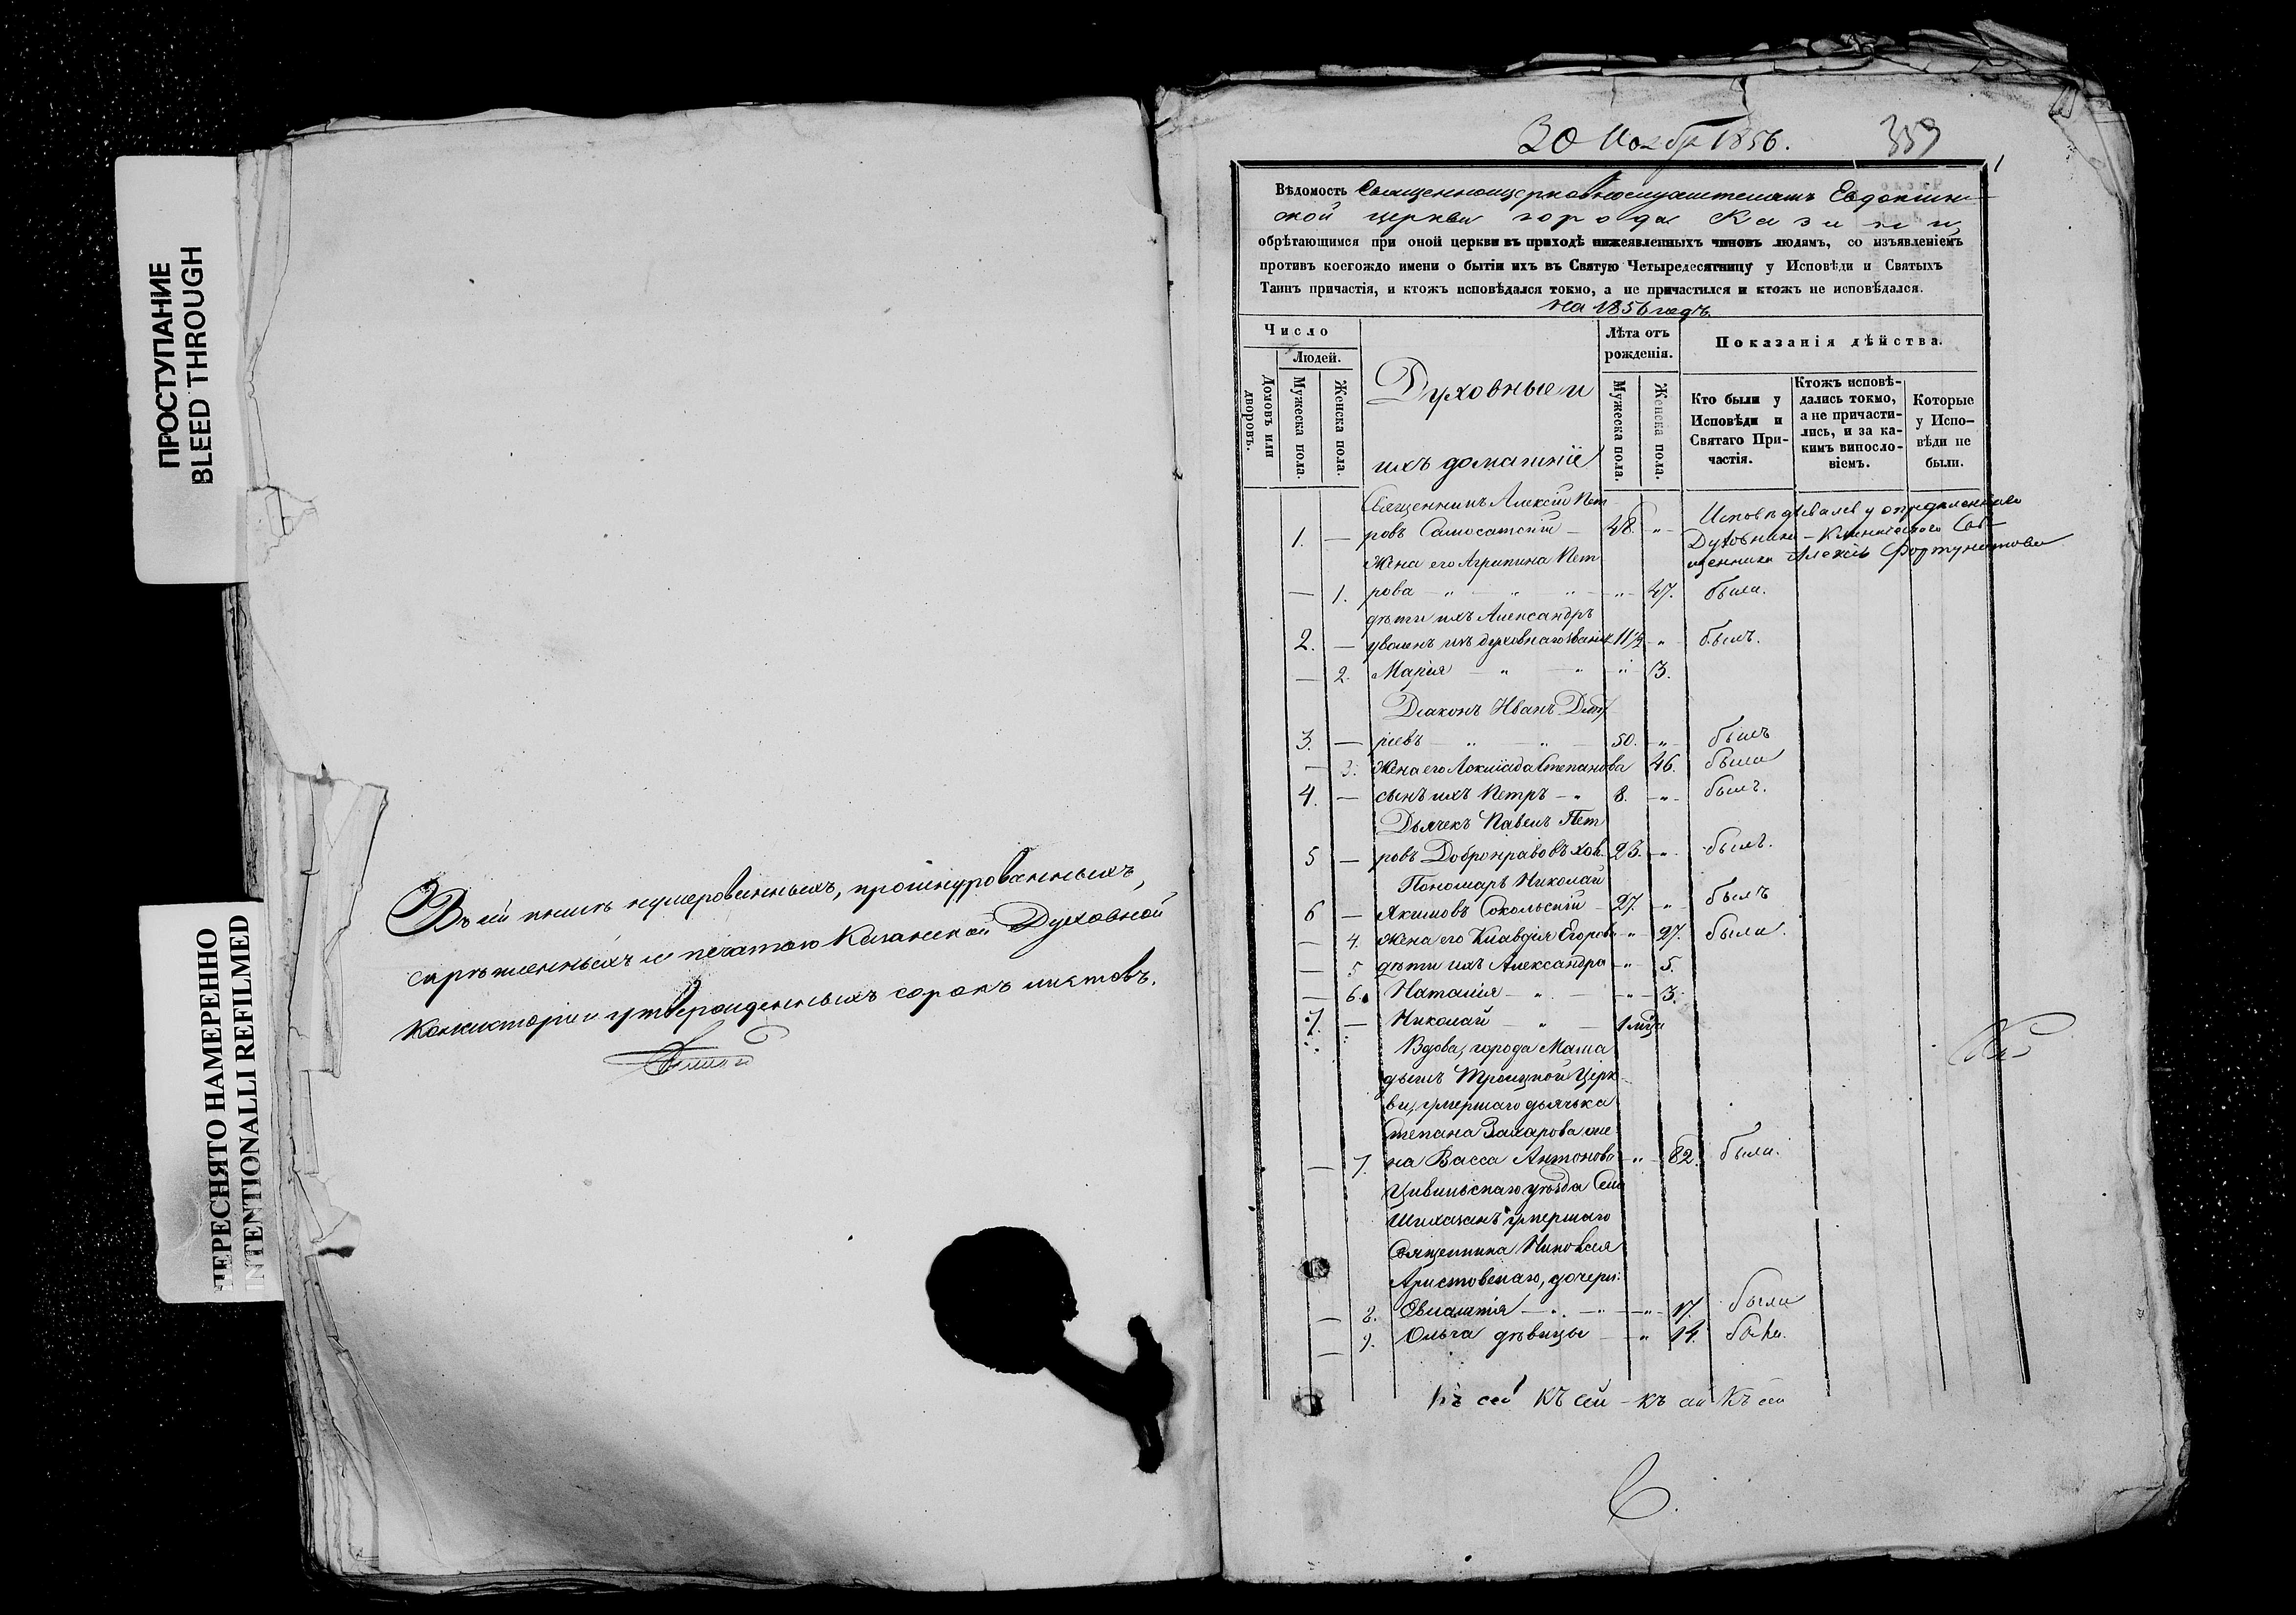 ПРОСТУПАНИЕ
BLEED THROUGH
ПЕРЕСНЯТО НАМЕРЕННО
INTENTIONALLI REFILMED
Въ сей книгѣ нумерованныхъ, прошнурованныхъ,
скрѣпленныхъ и печатью Казанской Духовной
Консисторіи утвержденныхъ сорокъ листовъ.
30 Ноября 1856.
359
Вѣдомость Священноцерковнослужителямъ Евдокіин-
ской церкви города Казани,
обрѣтающимся при оной церкви въ приходѣ нижеявленныхъ чиновъ людямъ, со изъявленіемъ
противъ коегождо имени о бытіи ихъ въ Святую Четыредесятницу у Исповѣди и Святыхъ
Таинъ причастія, и ктожъ исповѣдался токмо, а не причастился и ктожъ не исповѣдался.
на 1856 годъ.
Число
Людей.
Домовъ или дворовъ.
Мужеска пола.
Женска пола.
Духовные и
ихъ домашніе
Лѣта отъ рожденія.
Мужеска пола.
Женска пола.
Показанія дѣйства.
Кто были у Исповѣди и Святаго При-частія.
Ктожъ исповѣ-дались токмо, а не причасти-лись, и за ка-кимъ винословіемъ.
Которые у Испо-вѣди не были.
Священникъ Алексій Пет
1. — ровъ Самосатскій — 48. „
Исповѣдывался у опредѣленнаго
Духовника —
щенника Алексѣя Фортунатова
Жена его Агрипина Пет
— 1. рова — „ — „ — „ — „ — 47. была.
дѣти ихъ Александръ
2. — уволенъ изъ духовнаго званія 11½ „ былъ.
— 2. Марія — „ — „ „ 3.
Діаконъ Иванъ Дмит
3. — ріевъ — „ — „ — 50. — „ — былъ
— 3. Жена его Степанова 46. была
4. — сынъ ихъ Петръ — „ 8. — „ — былъ.
Дьячекъ Павелъ Пет
5 — ровъ Добронравовъ хол. 23. — „ — былъ.
Пономарь Николай
6 — Якимовъ Сокольскій — 27. — „ былъ
— 4. Жена его Клавдія Егорова „ 27. была.
— 5 дѣти ихъ Александра — „ 5.
— 6. Наталія — „ — „ — 3.
7. — Николай — „ — 1 мѣся
Вдова, города Мама
дышъ Троицкой Церк
ви, умершаго дьячька
Степана Захарова же
— 7. на Васса Антонова — „ — 82. была.
Цивильскаго уѣзда Села
Шихазанъ умершаго
Священника Николая
Аристовскаго, дочери:
— 8. Евлампія — „ — „ — „ — 17. была
— 9. Ольга дѣвицы — „ 14. была.
къ сей къ сей — къ сей къ сей
С.